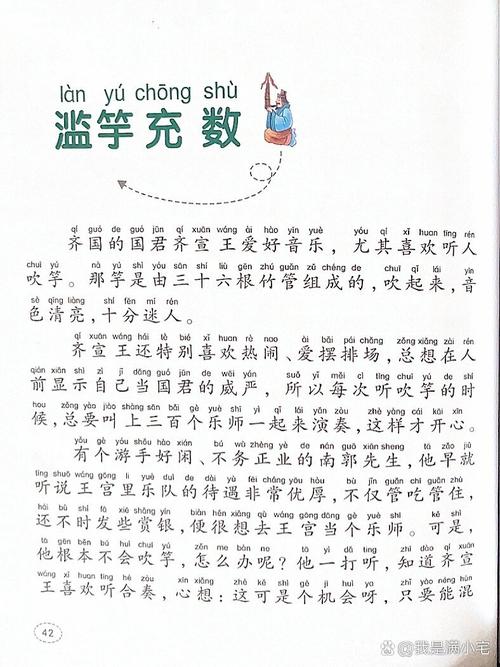 làn yú chōng shù
滥竽充数
qí guó de guó jūn qí xuān wáng ài hào yīn yuè yóu qí xǐ huan tīng rén
齐国的国君齐宣王爱好音乐，尤其喜欢听人
chuī yú nà yú shì yóu sān shí liù gēn zhú guǎn zǔ chéng de chuī qǐ lái yīn
吹竽。那竽是由三十六根竹管组成的，吹起来，音
sè qīng liàng shí fēn mí rén
色清亮，十分迷人。
qí xuān wáng hái tè bié xǐ huan rè nao ài bǎi pái chǎng zǒng xiǎng zài rén
齐宣王还特别喜欢热闹、爱摆排场，总想在人
qián xiǎn shì zì jǐ dāng guó jūn de wēi yán suǒ yǐ měi cì tīng chuī yú de shí
前显示自己当国君的威严，所以每次听吹竽的时
hou zǒng yào jiào shàng sān bǎi gè yuè shī yì qǐ lái yǎn zòu zhè yàng cái kāi xīn
候，总要叫上三百个乐师一起来演奏，这样才开心。
yǒu gè yóu shǒu hào xián bú wù zhèng yè de nán guō xiān sheng tā zǎo jiù
有个游手好闲、不务正业的南郭先生，他早就
tīng shuō wáng gōng lǐ yuè duì de dài yù fēi cháng yōu hòu bù jǐn guǎn chī guǎn zhù
听说王宫里乐队的待遇非常优厚，不仅管吃管住，
hái bù shí fā xiē shǎng yín biàn hěn xiǎng qù wáng gōng dāng gè yuè shī kě shì
还不时发些赏银，便很想去王宫当个乐师。可是，
tā gēn běn bú huì chuī yú zěn me bàn ne tā yì dǎ ting zhī dào qí xuān
他根本不会吹竽，怎么办呢？他一打听，知道齐宣
wáng xǐ huan tīng hé zòu xīn xiǎng zhè kě shì gè jī huì ya zhǐ yào néng hùn
王喜欢听合奏，心想：这可是个机会呀，只要能混
42
@我是满小宅